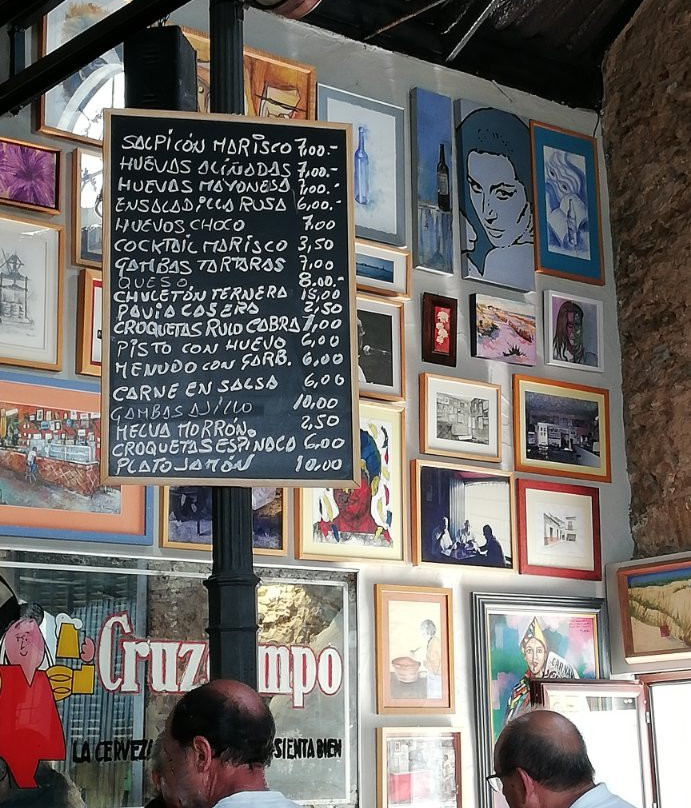 SALPICÓN MARISCO 7,00.-
HUEVAS ALIÑADAS 7,00.-
HUEVAS MAYONESA 7,00.-
ENSALADILLA RUSA 6,00.-
HUEVOS CHOCO 7,00
COCKTAIL MARISCO 3,50
GAMBAS TARTARAS 7,00
QUESO, 8.00.-
CHULETÓN TERNERA 15,00
PAVIA CASERA 2,50
CROQUETAS RULO CABRA 7,00
PISTO CON HUEVO 6,00
MENUDO CON GARB. 6,00
CARNE EN SALSA 6,00
GAMBAS AJILLO 10,00
MELVA MORRÓN. 2,50
CROQUETAS ESPINACA 6,00
PLATO JAMÓN 10,00
Cruz mpo
LA CERVEZ SIENTA BIEN